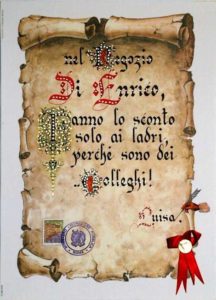 nel Negozio
Di Enrico,
Fanno lo sconto
solo ai ladri,
perchè sono dei
..Colleghi!
Luisa.